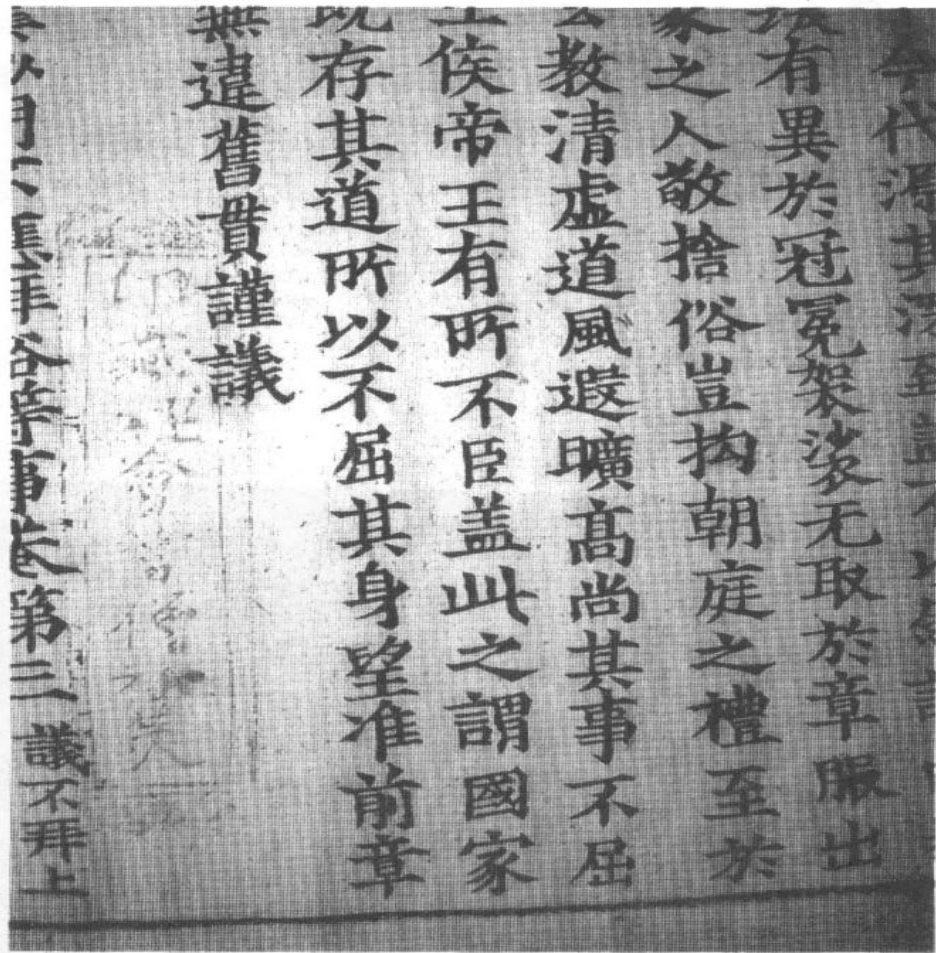 今代源其深至
有異於冠冕袈裟无取於章服出
家之人敬捨俗豈拘朝庭之禮至於
玄教清虛道風遐曠高尚其事不屈
王侯帝王有所不臣盖此之謂國家
既存其道所以不屈其身望准前章
無違舊貫謹議
沙門不應拜俗等事卷第三 議不拜上